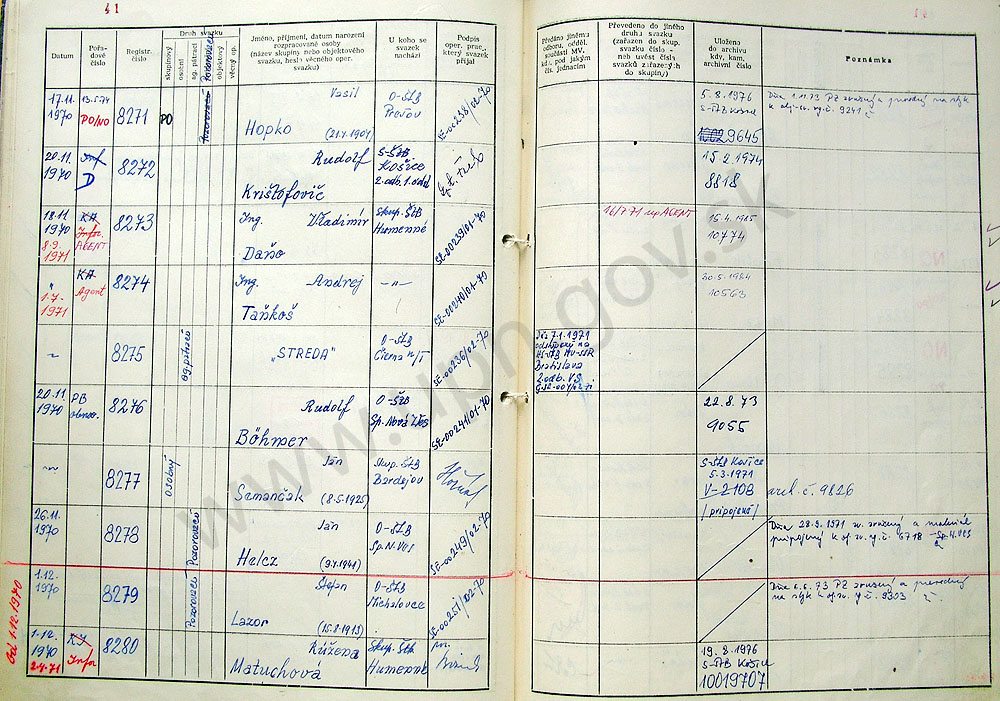 41
Datum
Pořa-
dové
číslo
Registr.
číslo
Druh svazku
skupinový
osobní
ag. pátrací
Pozorovací
objektový
věcný op.
Jméno, příjmení, datum narození
rozpracované osoby
(název skupiny nebo objektového
svazku, heslo věcného oper.
svazku)
U koho se
svazek
nachází
Podpis
oper. prac.,
který svazek
přijal
Předáno jinému
odboru, odděl.
součásti MV,
kdy, pod jakým
čís. jednacím
Převedeno do jiného
druhu svazku
(zařazen do skup.
svazku číslo -
neb uvést čísla
svazků zařazených
do skupiny)
Uloženo
do archivu
kdy, kam,
archivní číslo
Poznámka
17.11.
1970
13.5.74
PO/NO
8271
PO
Pozorovací
Vasil
Hopko
(21.4.1904)
O-ŠtB
Prešov
SE-00238/02-70
5.8.1976
S-ŠtB Košice
9645
20.11.
1970
Inf
D
8272
Rudolf
Krištofovič
S-ŠtB
Košice
2.odb. 1.odd
15.2.1974
8818
18.11.
1970
8.9.
1971
KA
Infor.
AGENT
8273
Ing. Vladimír
Daňo
Skup. ŠtB
Humenné
SE-00239/01-70
16/7 71 np AGENT
15.4.1985
10774
"
1.7.
1971
KA
Agent
8274
Ing. Andrej
Taňkoš
-"-
SE-00240/01-70
30.5.1984
10563
~
8275
ag. pátrací
"STREDA"
O-ŠtB
Čierna n/T
SE-00236/02-70
Dňa 7.1.1971
odstúpený na
HS-ŠtB MV-SSR
Bratislava
2.odb. VS
20.11.
1970
PB
obnov.
8276
Rudolf
Böhmer
O-ŠtB
Sp. Nová Ves
SE-00241/01-70
22.8.73
9055
8277
osobný
Ján
Semančák
(8.5.1925)
Skup. ŠtB
Bardejov
S-ŠtB Košice
5.3.1971
V-2108
/pripojená/
arch. č. 9826
26.11.
1970
8278
Pozorovací
Ján
Helcz
(9.4.1941)
O-ŠtB
Sp.N.Ves
SE-00249/02-70
Dňa 28.9.1971 zv. zrušený a materiál
pripojený k of. sv. ry. č. 6718 - Sp.N.Ves
Od 1.12.1970
1.12.
1970
8279
Pozorovací
Štefan
Lazor
(15.8.1913)
O-ŠtB
Michalovce
SE-00251/02-70
Dňa 6.6.73 PZ zrušený a prevedený
1.12.
1970
2.4.71
KI
Infor
8280
Ružena
Matuchová
Skup. ŠtB
Humenné
19.8.1976
S-ŠtB Košice
10019707
www.upn.gov.sk